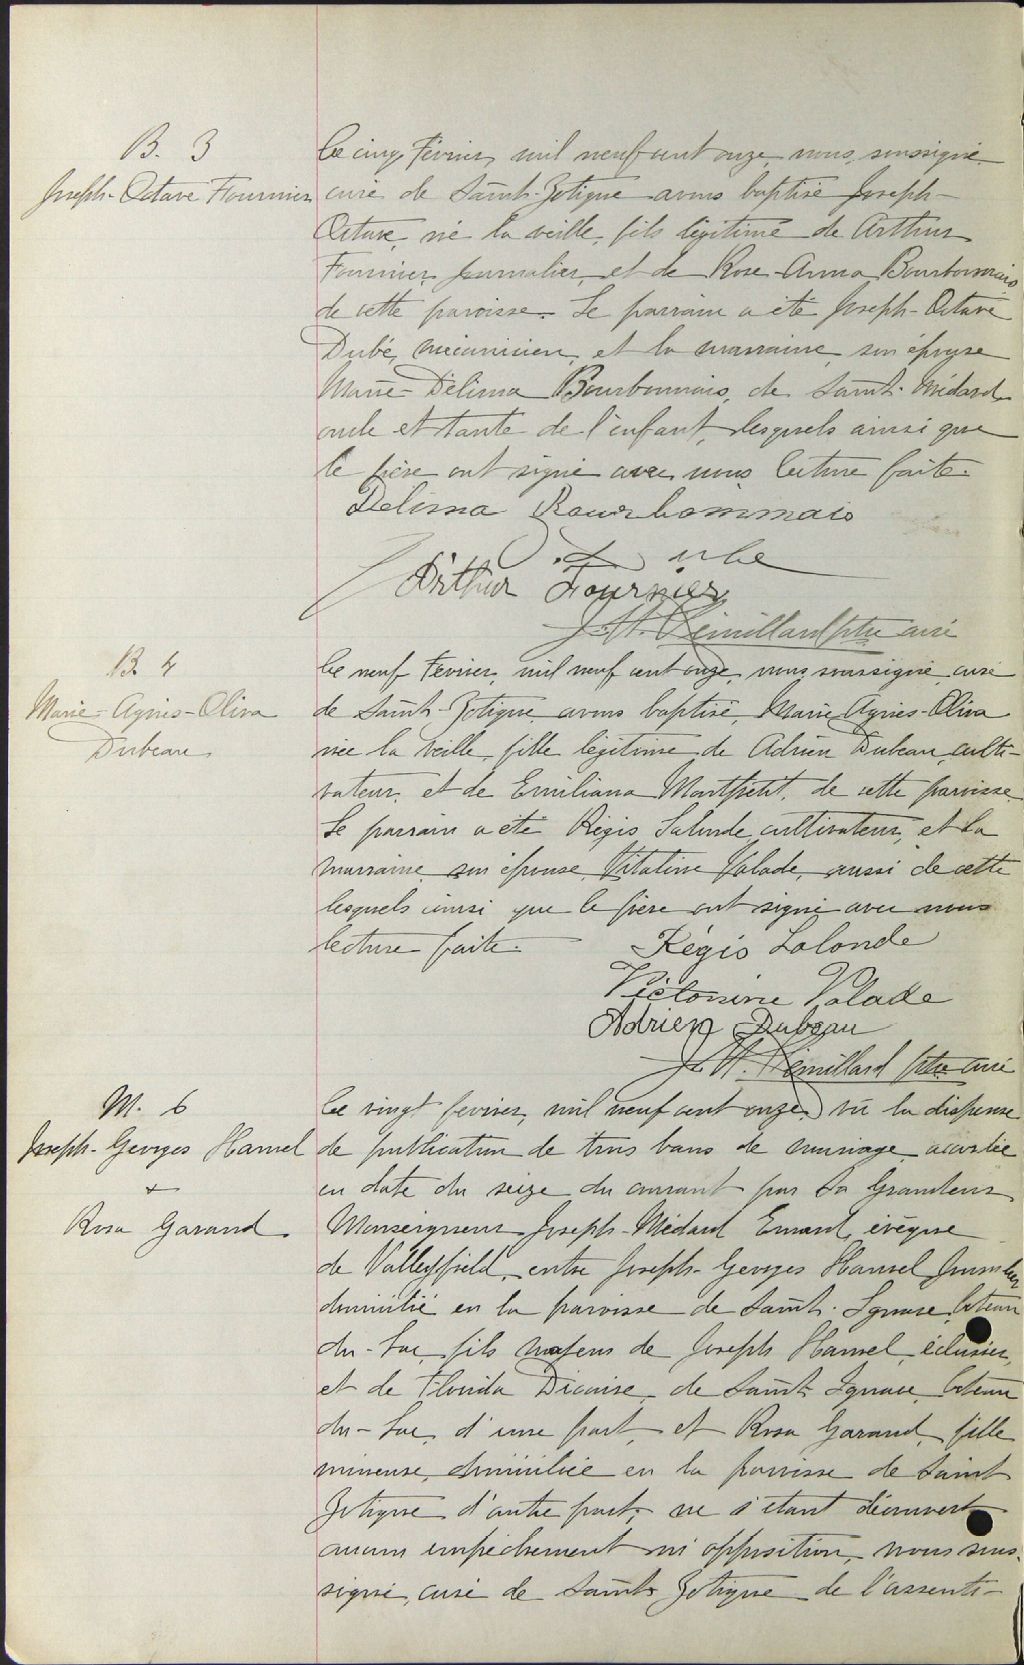 B. 3
Joseph-Octave Fournier
Le cinq Février, mil neuf cent onze, nous, soussigné
curé de Saint-Zotique avons baptisé Joseph-
Octave, né la veille, fils légitime de Arthur
Fournier, journalier, et de Rose-Anna Bourbonnais
de cette paroisse. Le parrain a été Joseph-Octave
Dubé, mécanicien, et la marraine, son épouse
Marie-Délima Bourbonnais, de Saint-Médard
oncle et tante de l'enfant, lesquels ainsi que
le père ont signé avec nous lecture faite.
Delima Bourbommais
Arthur Fournier
Rémillard ptre curé
B. 4
Marie-Agnès-Oliva
Dubeau
Le neuf Février, mil neuf cent onze, nous soussigné, curé
de Saint-Zotique avons baptisé, Marie-Agnès-Oliva
née la veille, fille légitime de Adrien Dubeau, culti-
vateur, et de Emiliana Montpetit, de cette paroisse.
Le parrain a été Régis Lalonde, cultivateur, et la
marraine, son épouse, Vitaline Valade, aussi de cette
lesquels ainsi que le père ont signé avec nous
lecture faite.
Régis Lalonde
Victorine Valade
Adrien Dubeau
Rémillard ptre curé
M. 6
Joseph-Georges Hamel
+
Rosa Garand
Le vingt février, mil neuf cent onze, vu la dispense
de publication de trois bans de mariage accordée
en date du seize du courant par Sa Grandeur
Monseigneur Joseph-Médard Emard, évêque
de Valleyfield, entre Joseph-Georges Hamel journalier
domicilié en la paroisse de Saint-Ignace, Coteau
du-Lac, fils majeur de Joseph Hamel, éclusier,
et de Florida Dicaire, de Saint-Ignace, Coteau
du-Lac, d'une part, et Rosa Garand, fille
mineure, domiciliée en la paroisse de Saint
Zotique d'autre part; ne s'étant découvert
aucun empêchement ni opposition, nous sous-
signé, curé de Saint-Zotique de l'assenti-